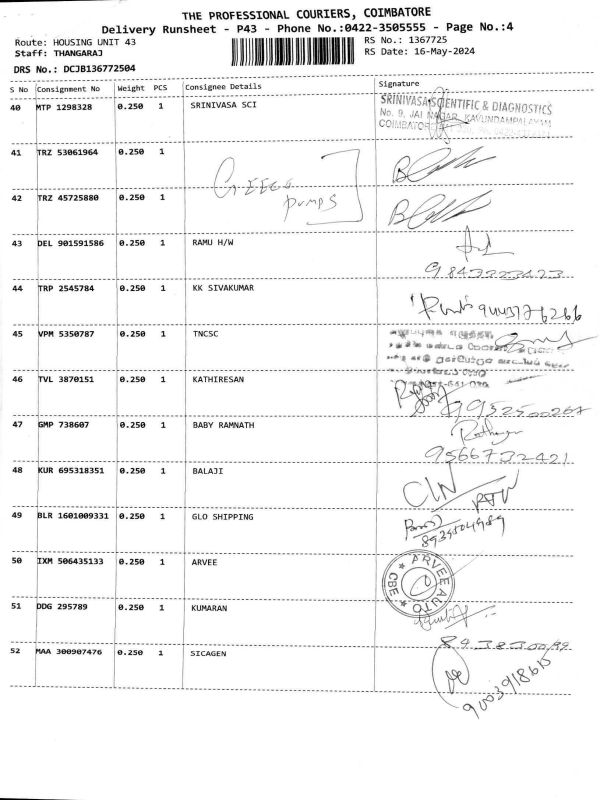 THE PROFESSIONAL COURIERS, COIMBATORE
Delivery Runsheet - P43 - Phone No.:0422-3505555 - Page No.:4
Route: HOUSING UNIT 43 RS No.: 1367725
Staff: THANGARAJ RS Date: 16-May-2024
DRS No.: DCJB136772504
S No Consignment No Weight PCS Consignee Details Signature
40 MTP 1298328 0.250 1 SRINIVASA SCI SRINIVASA SCIENTIFIC & DIAGNOSTICS
No. 9, JAI NAGAR, KAVUNDAMPALAYAM
COIMBATORE
41 TRZ 53061964 0.250 1
PUMPS
42 TRZ 45725880 0.250 1
43 DEL 901591586 0.250 1 RAMU H/W
9843223423
44 TRP 2545784 0.250 1 KK SIVAKUMAR
45 VPM 5350787 0.250 1 TNCSC
46 TVL 3870151 0.250 1 KATHIRESAN
9952500267
47 GMP 738607 0.250 1 BABY RAMNATH
9566732421
48 KUR 695318351 0.250 1 BALAJI
49 BLR 1601009331 0.250 1 GLO SHIPPING
50 IXM 506435133 0.250 1 ARVEE ARVEE AUTO CBE
51 DDG 295789 0.250 1 KUMARAN
52 MAA 300907476 0.250 1 SICAGEN